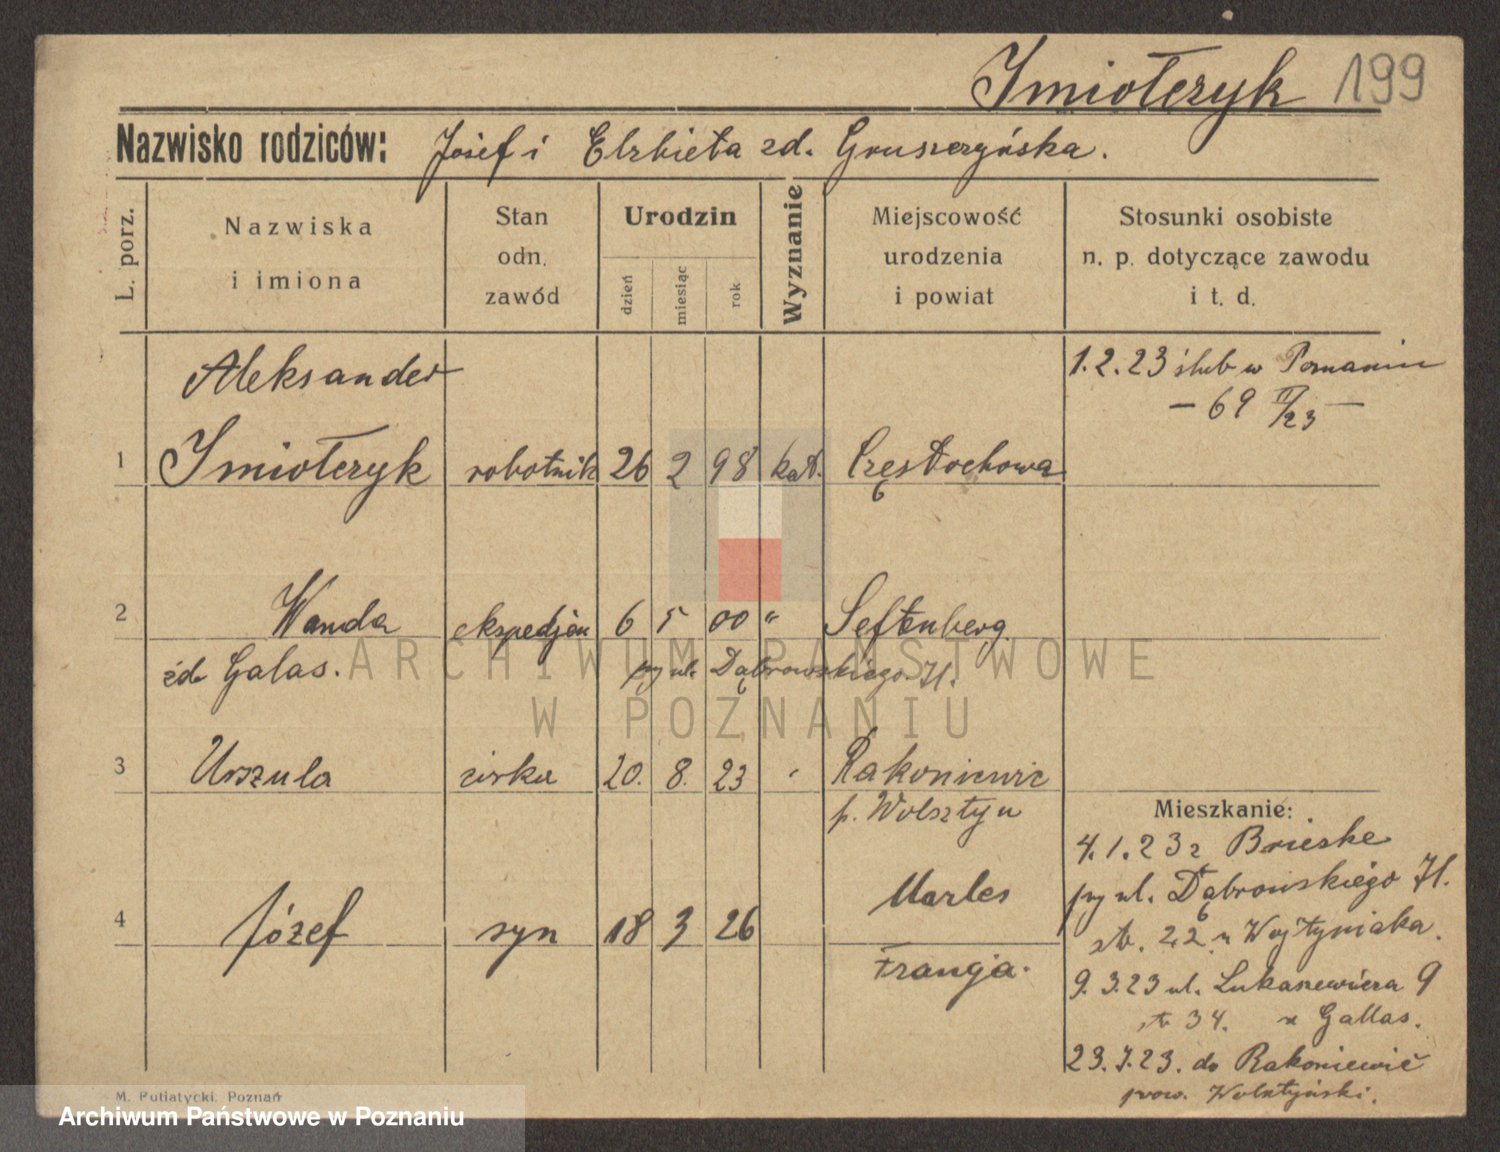 Imiołczyk 199
Nazwisko rodziców: Józef i Elżbieta zd. Gruszczyńska.
L. porz.
Nazwiska i imiona
Stan odn. zawód
Urodzin
dzień miesiąc rok
Wyznanie
Miejscowość urodzenia i powiat
Stosunki osobiste n. p. dotyczące zawodu i t. d.
Aleksander
1 Imiołczyk robotnik 26 2 98 kat. Częstochowa
1.2.23 ślub w Poznaniu
— 69 II/23 —
2 Wanda ekspedjen 6 5 00 " Seftenberg
zd. Galas. przy ul. Dąbrowskiego 71.
3 Urszula córka 20. 8. 23 " Rakoniewic
p. Wolsztyn
4 Józef syn 18 3 26 Marles
Francja.
Mieszkanie:
4.1.23 z Brieske
przy ul. Dąbrowskiego 71.
str. 22 u Wojtyniaka.
9.3.23 ul. Łukaszewicza 9
str 34. u Gallas.
23.7.23. do Rakoniewic
pow. Wolsztyński.
M. Putiatycki. Poznań
ARCHIWUM PAŃSTWOWE
W POZNANIU
Archiwum Państwowe w Poznaniu